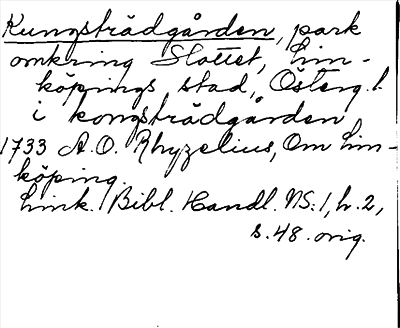 Kungsträdgården, park
omkring Slottet, Lin-
köpings stad, Österg. l.
i kongsträdgården
1733 A.O. Rhyzelius, Om Lin-
köping.
Link. Bibl. Handl. NS: 1, h. 2,
s. 48. orig.